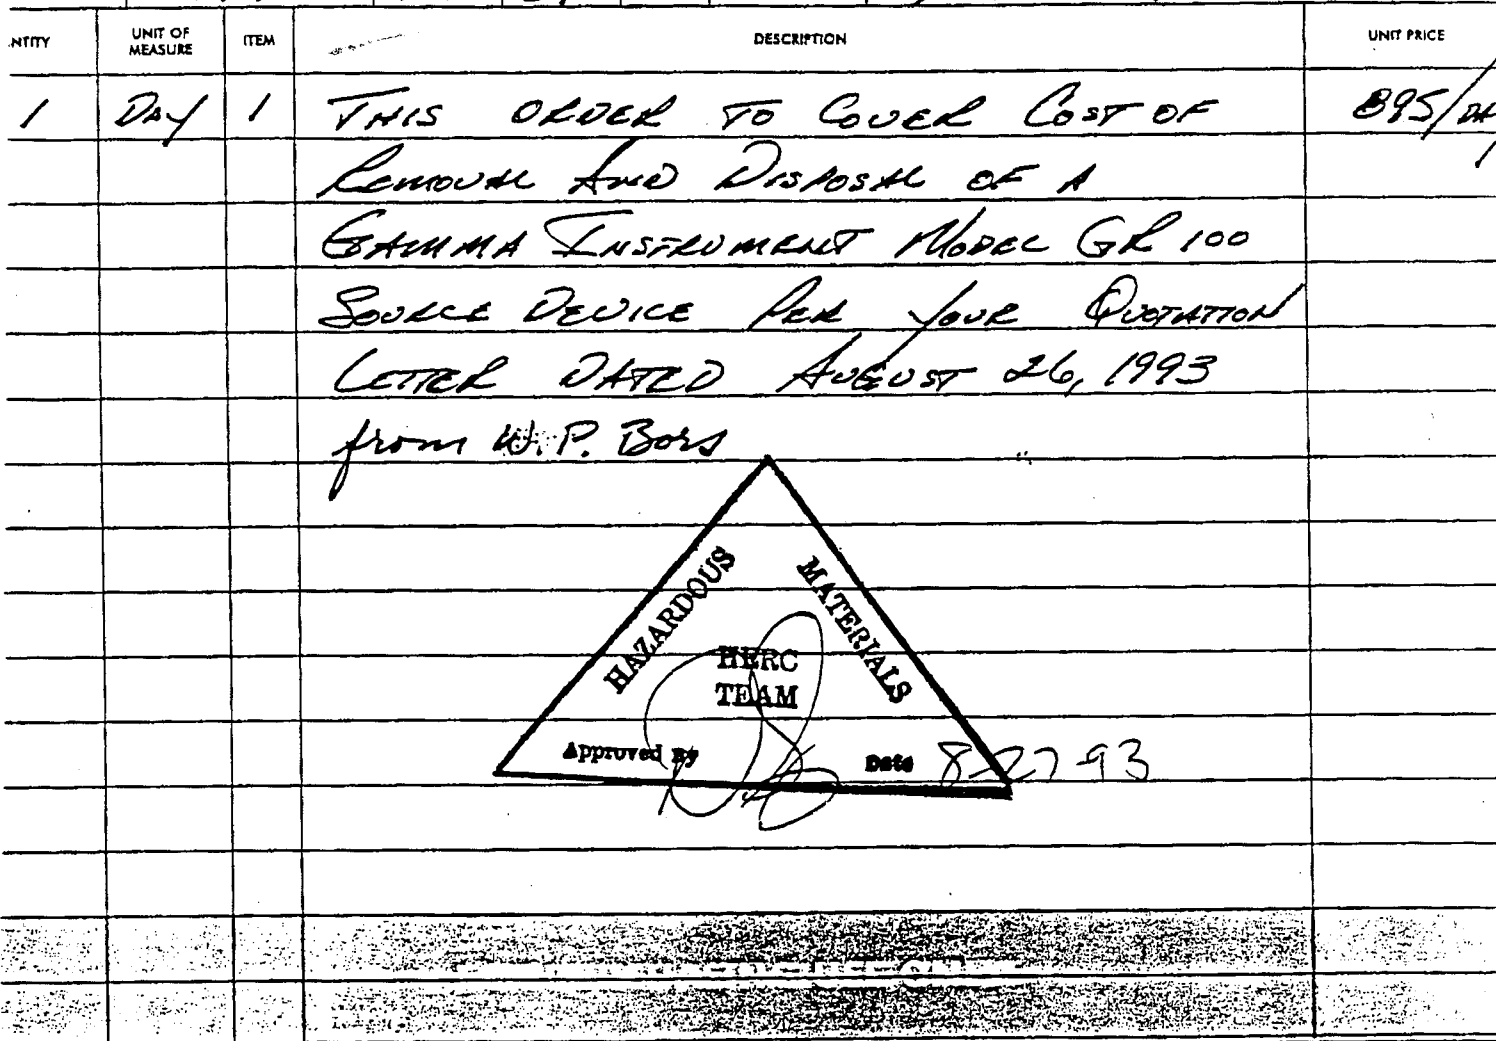 NTITY UNIT OF MEASURE ITEM DESCRIPTION UNIT PRICE
1 DAY 1 THIS ORDER TO COVER COST OF 895/DA
REMOVAL AND DISPOSAL OF A
GAMMA INSTRUMENT MODEL GR 100
SOURCE DEVICE PER YOUR QUOTATION
LETTER DATED AUGUST 26, 1993
from W.P. Bors
HAZARDOUS MATERIALS
HERC
TEAM
Approved By Date 8-27-93